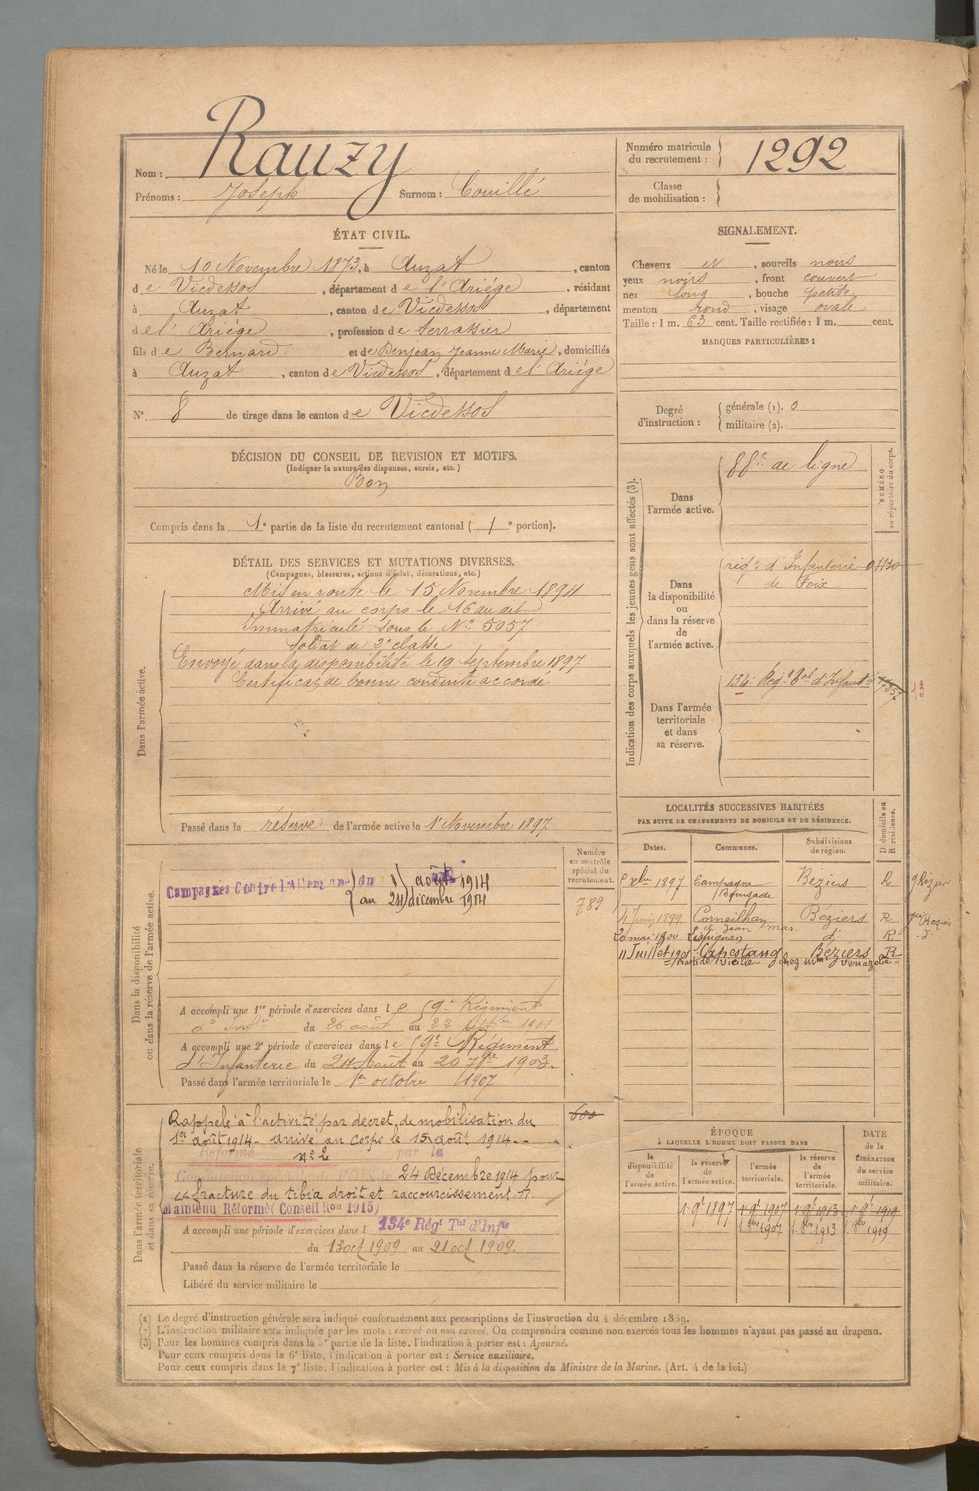 Nom : Rauzy
Prénoms : Joseph Surnom : Couillé
Numéro matricule du recrutement : 1292
Classe de mobilisation :
ÉTAT CIVIL.
Né le 10 Novembre 1873, à Auzat, canton
de Vicdessos, département de l'Ariége, résidant
à Auzat, canton de Vicdessos, département
de l'Ariége, profession de terrassier
fils de Bernard et de Denjean Jeanne Marie, domiciliés
à Auzat, canton de Vicdessos, département de l'Ariége
N° 8 de tirage dans le canton de Vicdessos
SIGNALEMENT.
Cheveux et, sourcils noirs
yeux noirs, front couvert
nez long, bouche petite
menton rond, visage ovale
Taille : 1 m. 63 cent. Taille rectifiée : 1 m. cent.
MARQUES PARTICULIÈRES :
Degré d'instruction : générale (1). 0
militaire (2).
DÉCISION DU CONSEIL DE REVISION ET MOTIFS.
(Indiquer la nature des dispenses, sursis, etc.)
Bon
Compris dans la 1e partie de la liste du recrutement cantonal (1e portion).
DÉTAIL DES SERVICES ET MUTATIONS DIVERSES.
(Campagnes, blessures, actions d'éclat, décorations, etc.)
Dans l'armée active.
Mis en route le 15 Novembre 1894
Arrivé au corps le 16 du dit
Immatriculé sous le N° 5057
Soldat de 2e classe
Envoyé dans la disponibilité le 19 Septembre 1897
Certificat de bonne conduite accordé
Passé dans la réserve de l'armée active le 1er Novembre 1897
Indication des corps auxquels les jeunes gens sont affectés (3).
NUMÉRO au répertoire du corps.
Dans l'armée active.
88e de ligne
Dans la disponibilité ou dans la réserve de l'armée active.
régt d'Infanterie
de Foix
Dans l'armée territoriale et dans sa réserve.
134e Régt Tal d'Infanterie
Dans la disponibilité ou dans la réserve de l'armée active.
Numéro au contrôle spécial du recrutement.
789
Campagnes Contre l'Allemagne du août 1914
au 24 décembre 1914
A accompli une 1re période d'exercices dans le 59e Régiment
d'Infie du 26 août au 22 septbre 1901
A accompli une 2e période d'exercices dans le 59e Régiment
d'Infanterie du 24 août au 20 7bre 1903.
Passé dans l'armée territoriale le 1er octobre 1907
LOCALITÉS SUCCESSIVES HABITÉES
PAR SUITE DE CHANGEMENTS DE DOMICILE OU DE RÉSIDENCE.
Dates. Communes. Subdivisions de région. D domicile ou R résidence.
xbre 1897 Campagne Béziers R
Juin 1899 Corneilhan Béziers R
ch Jean mas.
20 mai 1900 Lespignan d° R
11 Juillet 1901 Capestang Béziers R
Dans l'armée territoriale et dans sa réserve.
600
Rappelé à l'activité par décret de mobilisation du
1er août 1914 - arrivé au corps le 15 août 1914 -
Réformé n° 2 par la
Commission spéciale de 24 Décembre 1914 pour
" fracture du tibia droit et raccourcissement ".
Maintenu Réformé (Conseil 1915)
A accompli une période d'exercices dans l 134e Régt Tal d'Infie
du 13 oct 1909 au 21 oct 1909.
Passé dans la réserve de l'armée territoriale le
Libéré du service militaire le
ÉPOQUE
À LAQUELLE L'HOMME DOIT PASSER DANS
DATE de la LIBÉRATION du service militaire.
la disponibilité de l'armée active. la réserve de l'armée active. l'armée territoriale. la réserve de l'armée territoriale.
1 9bre 1897 1 9bre 1907 1 9bre 1913 1 9bre 1919
1 8bre 1907 1 8bre 1913 1 8bre 1919
(1) Le degré d'instruction générale sera indiqué conformément aux prescriptions de l'instruction du 4 décembre 1889.
(2) L'instruction militaire sera indiquée par les mots : exercé ou non exercé. On comprendra comme non exercés tous les hommes n'ayant pas passé au drapeau.
(3) Pour les hommes compris dans la 5e partie de la liste, l'indication à porter est : Ajourné.
Pour ceux compris dans la 6e liste, l'indication à porter est : Service auxiliaire.
Pour ceux compris dans la 7e liste, l'indication à porter est : Mis à la disposition du Ministre de la Marine. (Art. 4 de la loi.)